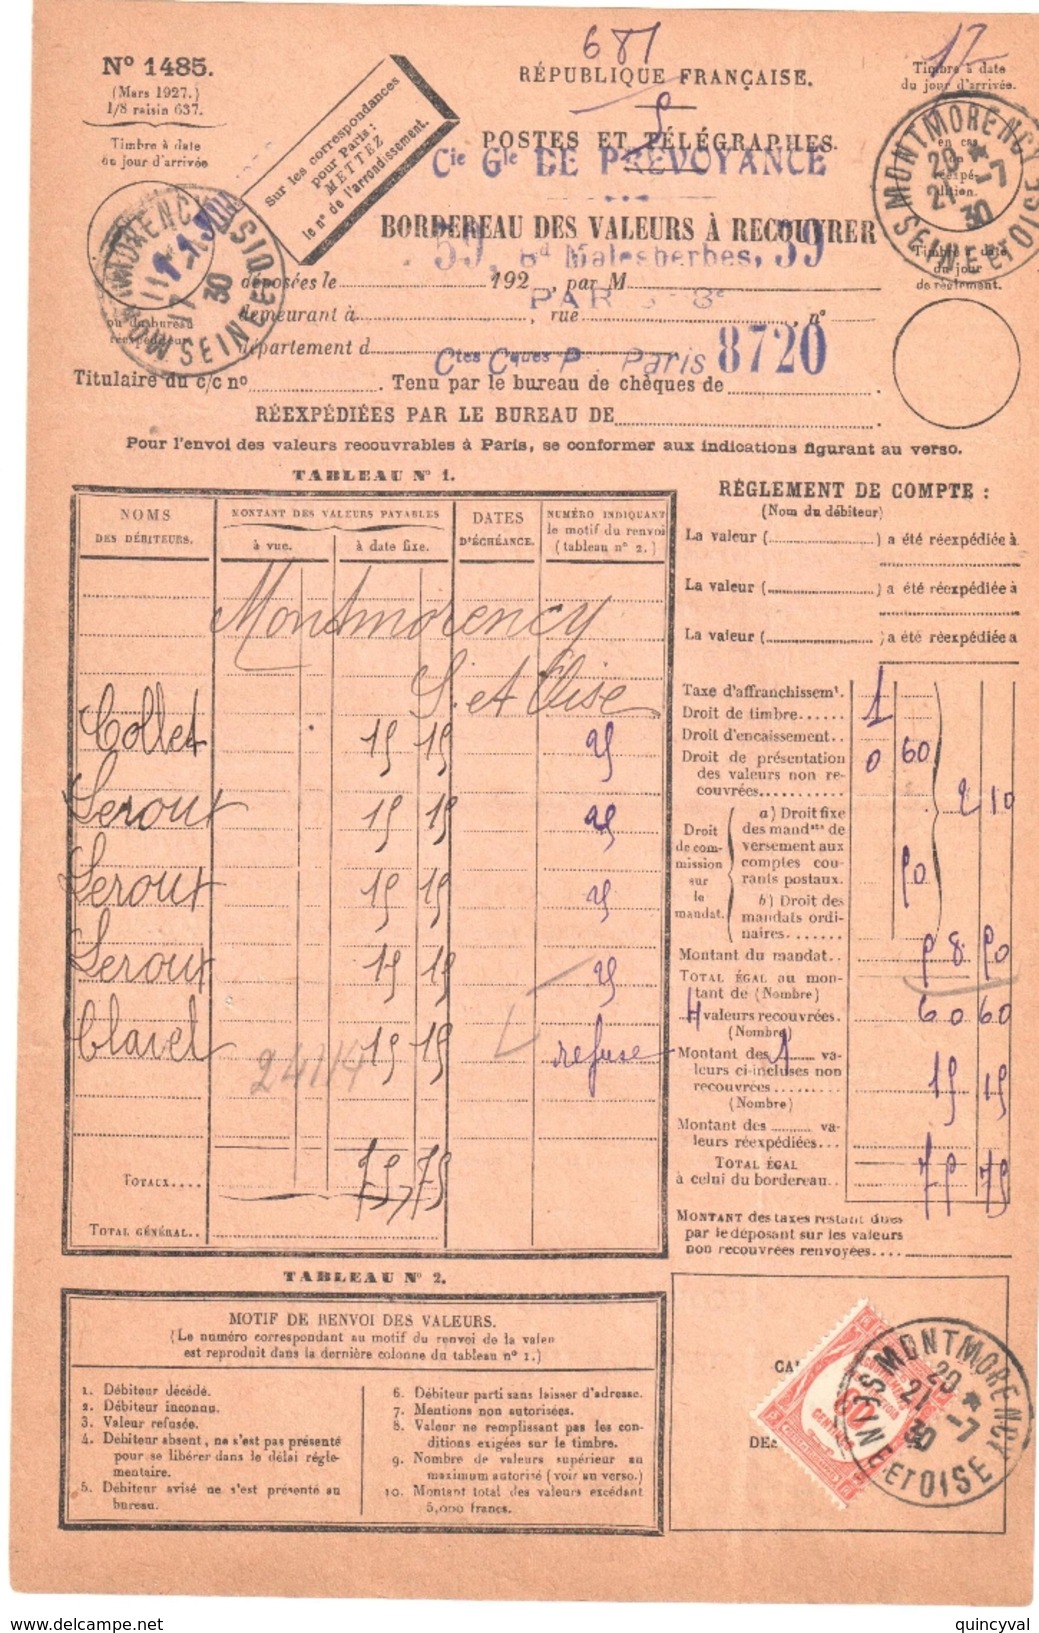 681
12
5
N° 1485.
(Mars 1927.)
1/8 raisin 637.
Timbre à date
du jour d'arrivée
ou du bureau
réexpéditeur
Sur les correspondances
pour Paris:
METTEZ
le n° de l'arrondissement.
RÉPUBLIQUE FRANÇAISE.
POSTES ET TÉLÉGRAPHES.
Cie Gle DE PREVOYANCE
BORDEREAU DES VALEURS À RECOUVRER
59, Bd Malesherbes, 39
déposées le 192 , par M
PARIS 8e
demeurant à , rue , n°
département d
Ctes Cques P. Paris 8720
Titulaire du c/c n° . Tenu par le bureau de chèques de .
RÉEXPÉDIÉES PAR LE BUREAU DE
Pour l'envoi des valeurs recouvrables à Paris, se conformer aux indications figurant au verso.
Timbre à date
du jour d'arrivée.
en cas
de
réexpé-
dition.
Timbre à date
du jour
de règlement.
MONTMORENCY SEINE ET OISE
20 *
21 -7
30
TABLEAU N° 1.
NOMS
DES DÉBITEURS.
MONTANT DES VALEURS PAYABLES
à vue.
à date fixe.
DATES
D'ÉCHÉANCE.
NUMÉRO INDIQUANT
le motif du renvoi
(tableau n° 2.)
Montmorency
S. et Oise
Collet 15 15
Leroux 15 15
Leroux 15 15
Leroux 15 15
Clavel 15 15 refusé
TOTAUX.... 75 75
TOTAL GÉNÉRAL..
RÈGLEMENT DE COMPTE :
(Nom du débiteur)
La valeur ( ) a été réexpédiée à
La valeur ( ) a été réexpédiée à
La valeur ( ) a été réexpédiée à
Taxe d'affranchissemt. 1
Droit de timbre......
Droit d'encaissement..
Droit de présentation
des valeurs non re-
couvrées........... 0 60
2 10
Droit
de com-
mission
sur
le
mandat.
a) Droit fixe
des mandats de
versement aux
comptes cou-
rants postaux.
b) Droit des
mandats ordi-
naires.......
Montant du mandat..
TOTAL ÉGAL au mon-
tant de (Nombre)
4 valeurs recouvrées. 60 60
(Nombre)
Montant des 1 va-
leurs ci-incluses non
recouvrées......... 15 15
(Nombre)
Montant des va-
leurs réexpédiées...
TOTAL ÉGAL
à celui du bordereau.. 75 75
MONTANT des taxes restant dues
par le déposant sur les valeurs
non recouvrées renvoyées....
TABLEAU N° 2.
MOTIF DE RENVOI DES VALEURS.
(Le numéro correspondant au motif du renvoi de la valeur
est reproduit dans la dernière colonne du tableau n° 1.)
1. Débiteur décédé.
2. Débiteur inconnu.
3. Valeur refusée.
4. Débiteur absent, ne s'est pas présenté
pour se libérer dans le délai régle-
mentaire.
5. Débiteur avisé ne s'est présenté au
bureau.
6. Débiteur parti sans laisser d'adresse.
7. Mentions non autorisées.
8. Valeur ne remplissant pas les con-
ditions exigées sur le timbre.
9. Nombre de valeurs supérieur au
maximum autorisé (voir au verso.)
10. Montant total des valeurs excédant
5,000 francs.
CENTIMES
MONTMORENCY SEINE ET OISE
20 *
21 -7
30
quincyval